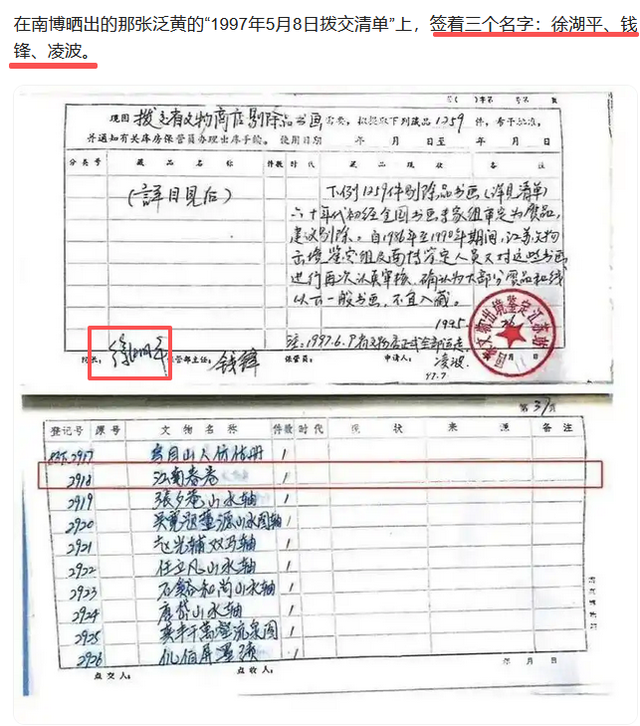 在南博晒出的那张泛黄的“1997年5月8日拨交清单”上，签着三个名字：徐湖平、钱
锋、凌波。
现因 拨交有文物商店剔除品书画 需要，拟提取下列藏品 1259 件，希予批准，
并通知有关库房保管员办理出库手续。使用日期 年 月 日至 年 月 日
分类号 藏品名称 件数 时代 藏品现状 备注
（詳目見后）
下列1259件剔除品书画（详见清单）
六十年代初经全国书画专家组审定为废品，
建议剔除。自1986年至1990年期间，江苏文物
出境鉴定组及南博鉴定人员又对这些书画
进行再次认真审核，确认为大部分废品和线
以下一般书画，不宜入藏。
1995
注：1997.6.9
文物出境鉴定江苏站
院长： 徐湖平 保管部主任： 钱锋 保管员： 申请人： 凌波
97.7
第 37 页
登记号 原号 文物名称 件数 时代 现状 来源 备注
2917 1
2918 江南春卷 1
2919 張夕菴山水轴 1
2920 吴寛 董源山水图轴 1
2921 赵光辅双马轴 1
2922 任立凡山水轴 1
2923 石谿和尚山水轴 1
2924 唐岱山水轴 1
2925 萬壑流泉图 1
2926 仇伯屏墨 1
点交人： 点收人： 年 月 日